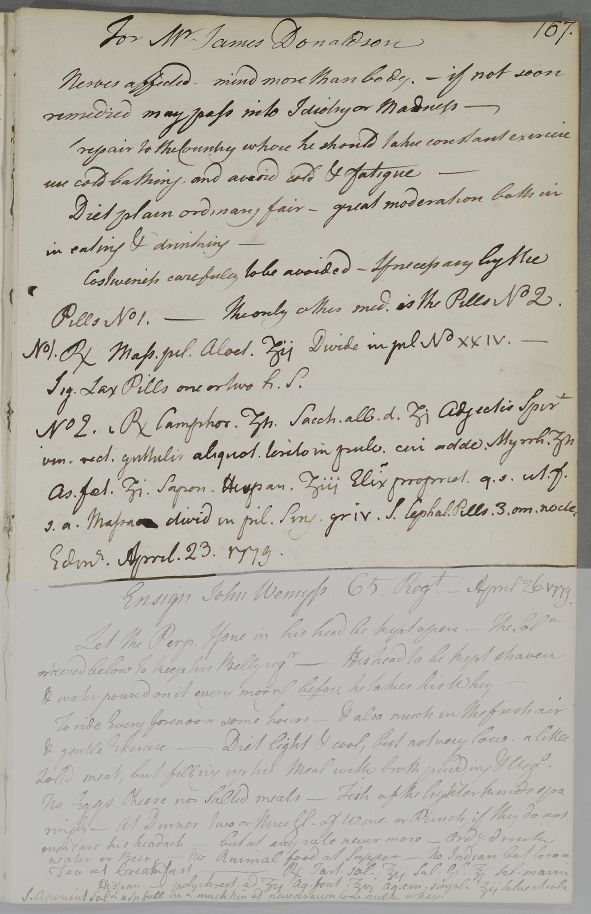 167.
For Mr. James Donaldson
Nerves affected - mind more than body. - if not soon
remedied may pass into Idiotry or Madness -
repair to the Country where he should take constant exercise
use cold bathing, and avoid cold & fatigue -
Diet plain ordinary fair - great moderation both in
in eating & drinking -
Costiveness carefully to be avoided - If necessary by the
Pills No 1. - the only other med. is the Pills No 2.
No 1. ℞ Mass. pil. Aloet. ʒij Divide in pil. No XXIV. -
Sig. Lax Pills one or two h. S.
No 2. ℞ Camphor. ʒß. Sacch. alb. d. ʒj Adjectis Spirt
vin. rect. guttulis aliquot. terito in pulv. cui adde. Myrrh. ʒß
As. fet. ʒj. Sapon. Hispan. ʒiij Elixr propriet. q. s. ut. f.
s. a. Massa divid in pil. Sing. gr iv. S. Cephal. Pills. 3. om. nocte.
Edinr. April. 23. 1779.
Ensign John Wemyss. 65. Regt. - April 26. 1779.
Let the Perp. Issue in his head be kept open. - The Soln
ordered below to keep his Belly regr - His head to be kept shaven
& water poured on it every morng before he takes his Whey -
To ride Every forenoon some hours - & also much in the fresh air
& gentle Exercise. - Diet light & cool, but not very low. - a little
solid meat, but filling up his Meal with broth pudding & Vegs.
No Eggs Cheese nor Salted meats - Fish of the lighter kinds spa
ringly - At Dinner two or three Gl. of Wine or Punch, if they do not
increase his headach - but at any rate never more - Ordy drink
water or Beer. No Animal food at Supper - No Indian but Cocoa
Tea at breakfast ℞ Tart. sol. ʒij Sal. Gl. ʒj Sal. mann